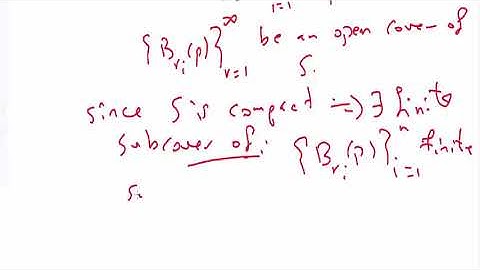 i=1
{B_{r_i}(p)}_{r=1}^∞ be an open cover of
S.
since S is compact => ∃ finite
subcover of: {B_{r_i}(p)}_{i=1}^n finite
S